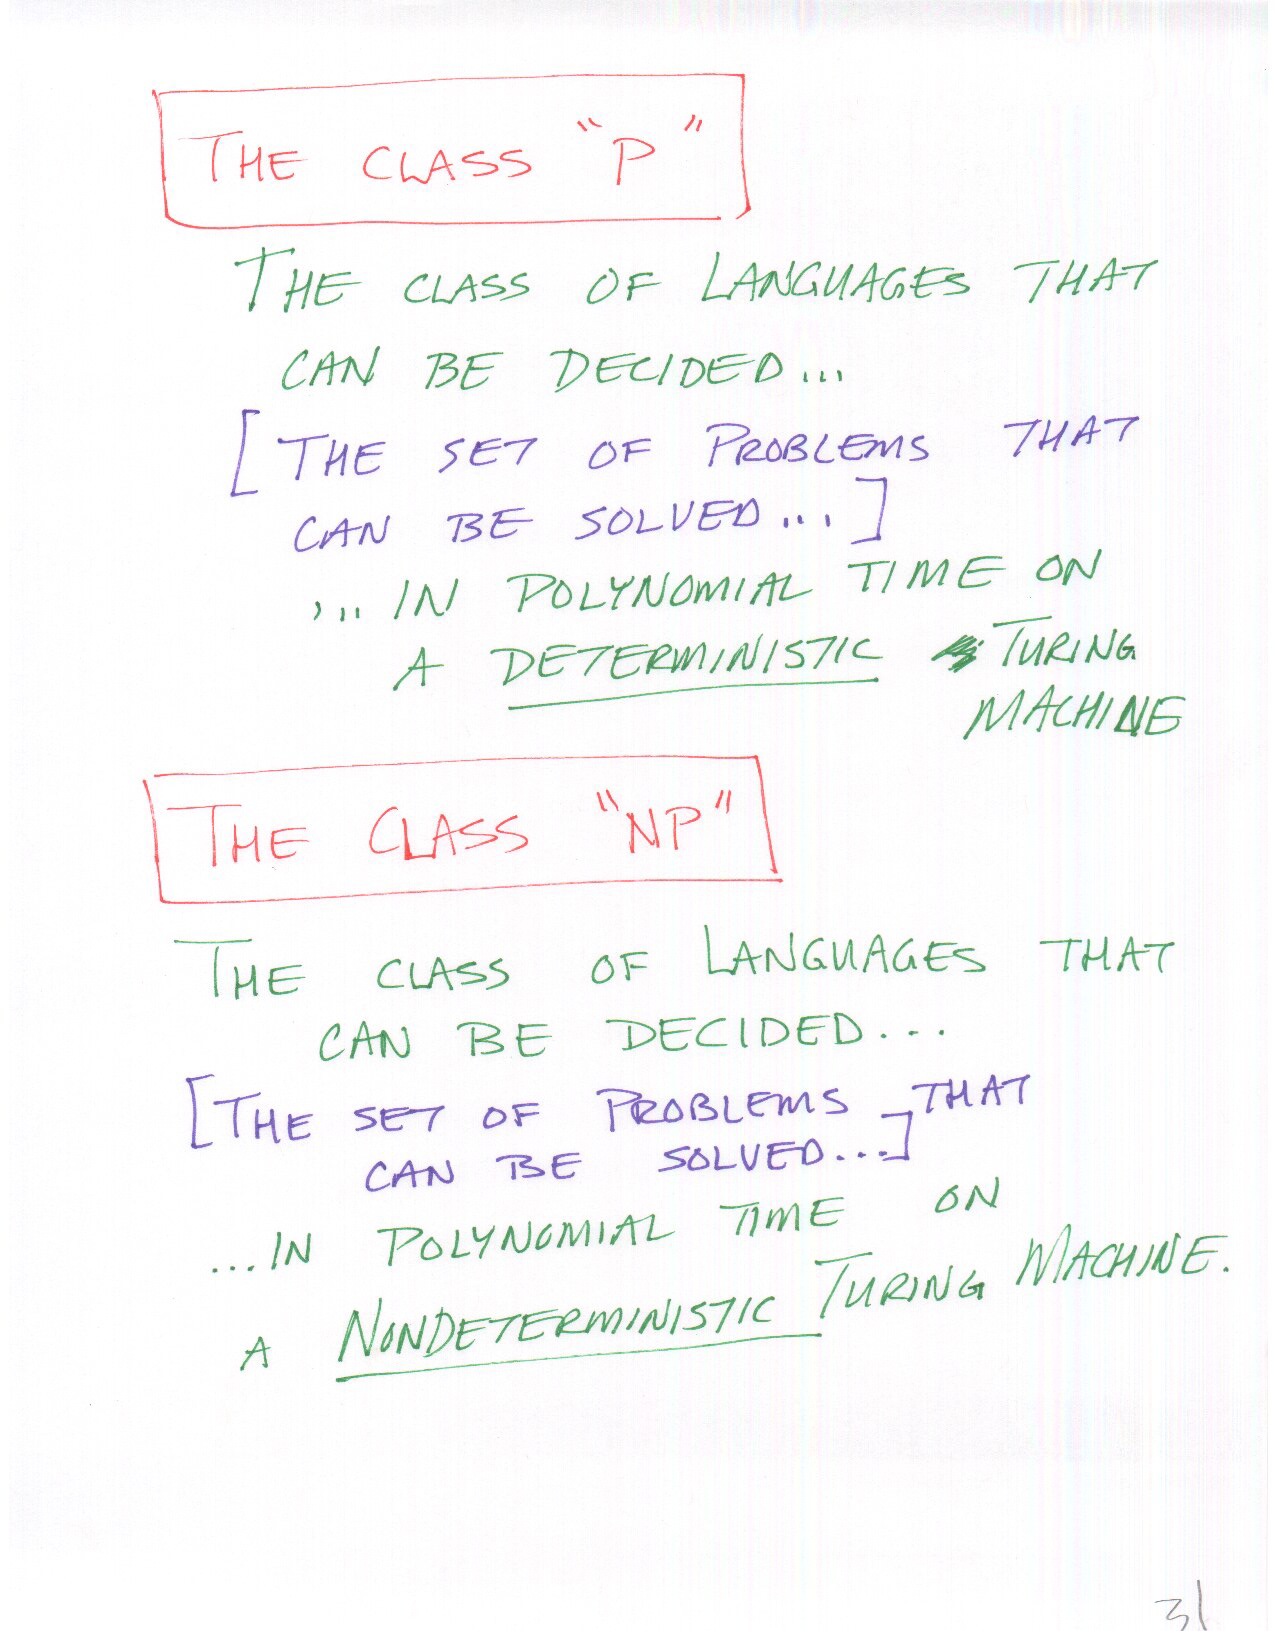 THE CLASS "P"
THE CLASS OF LANGUAGES THAT
CAN BE DECIDED...
[THE SET OF PROBLEMS THAT
CAN BE SOLVED...]
... IN POLYNOMIAL TIME ON
A DETERMINISTIC TURING
MACHINE
THE CLASS "NP"
THE CLASS OF LANGUAGES THAT
CAN BE DECIDED...
[THE SET OF PROBLEMS THAT
CAN BE SOLVED...]
...IN POLYNOMIAL TIME ON
A NONDETERMINISTIC TURING MACHINE.
31